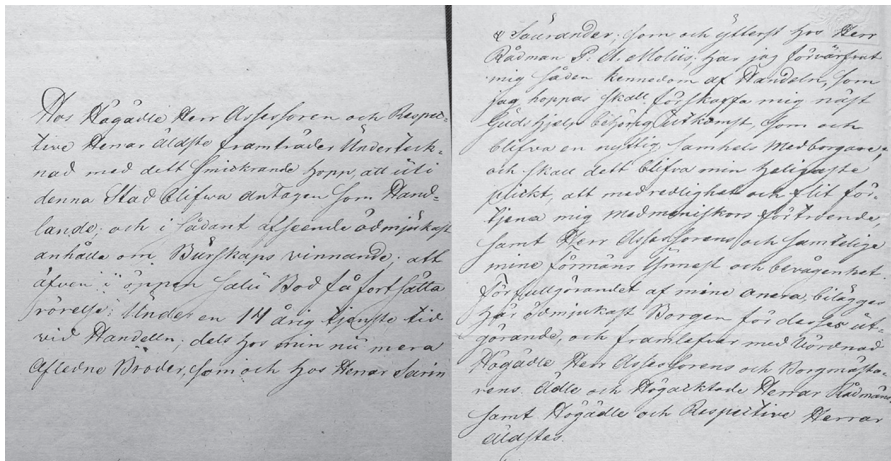 Hos Högädle Herr Assessoren och Respec-
tive Herrar Äldste framträder Underteck-
nad med dett smickrande hopp, att uti
denna Stad blifwa antagen som Hand-
lande; och i sådant afseende ödmjukast
anhålla om Burskaps vinnande; att
äfven i öppen Salu Bod få fortsätta
rörelse; Under en 14 årig tjenste tid
vid Handeln, dels hos min nu mera
Aflednne Broder, som och hos Herrar Sarin
& Saurander, som och ytterst hos Herr
Rådman P. A. Moliis, har jag förvärfvat
mig såden kennedom af Handeln, som
jag hoppas skall förskaffa mig näst
Guds hjelp utkomst, som och
blifva en nyttig samhels Medborgare,
och skall dett blifva min heligaste
plickt, att med redlighet och flit för-
tjena mig medmeniskors förtroende,
samt Herr Assessorens och samtelige
mine förmäns ynnest och bevågenhet
för fullgörandet af mine onera, bilägges
här ödmjukast Borgen för desses ut-
görande, och framlefver med Vördnad
Högädle Herr Assessorens och Borgmästa-
rens Ädle och Högacktade Herrar Rådmäns
samt Högädle och Respective Herrar
Äldstes